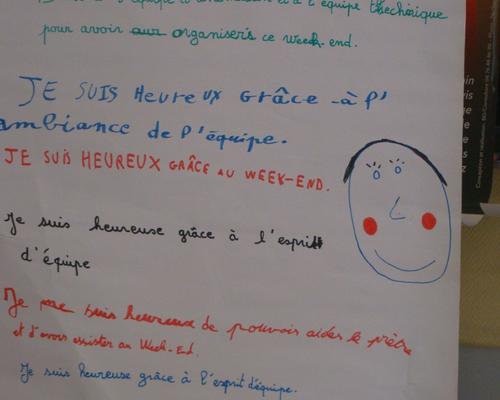 l'équipe thechinique
pour avoir aux organisers ce week end.
JE SUIS HEUREUX GRÂCE -à l'
ambiance de l'équipe.
JE SUIS HEUREUX GRÂCE AU WEEK-END.
Je suis heureuse grâce à l'esprit
d'équipe
Je me suis heureuse de pouvoir aider le prêtre
et d'avoir assister au Week-End.
Je suis heureuse grâce à l'esprit d'équipe.